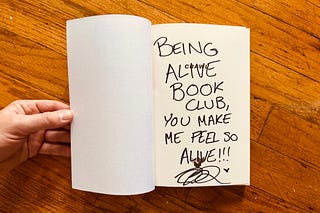 BEING
ALIVE
BOOK
CLUB,
YOU MAKE
ME FEEL SO
ALIVE!!!